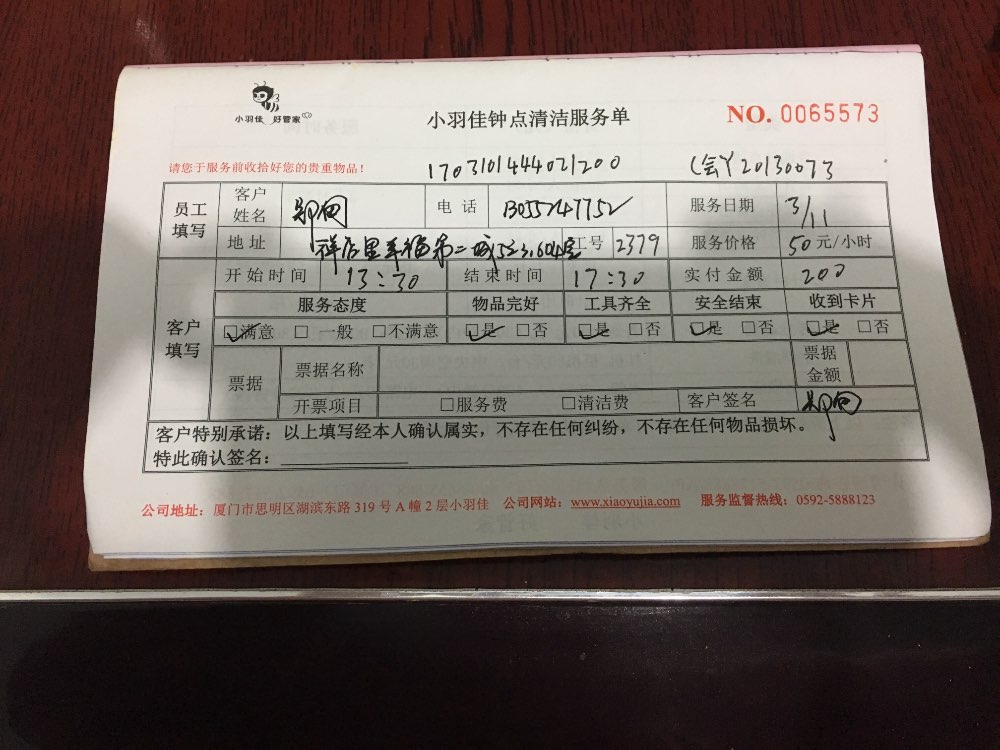 小羽佳 好管家
小羽佳钟点清洁服务单
NO. 0065573
请您于服务前收拾好您的贵重物品!
170310144402 1200
(会)Y20130073
员工填写 客户姓名 电话 服务日期 3/11
地址 工号 2379 服务价格 50元/小时
开始时间 13:30 结束时间 17:30 实付金额 200
客户填写 服务态度 物品完好 工具齐全 安全结束 收到卡片
☑满意 □一般 □不满意 ☑是 □否 ☑是 □否 ☑是 □否 ☑是 □否
票据 票据名称 票据金额
开票项目 □服务费 □清洁费 客户签名
客户特别承诺:以上填写经本人确认属实,不存在任何纠纷,不存在任何物品损坏。
特此确认签名:
公司地址:厦门市思明区湖滨东路 319 号 A 幢 2 层小羽佳 公司网站:www.xiaoyujia.com 服务监督热线:0592-5888123